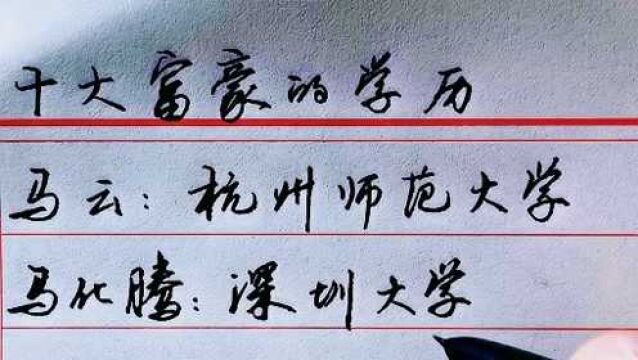 十大富豪的学历
马云：杭州师范大学
马化腾：深圳大学